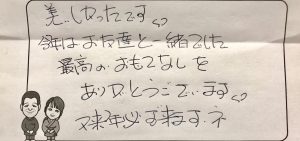 美しかったです♡
今年はお友達と一緒でした
最高のおもてなしを
ありがとうございます♡
又来年必ず来ますネ